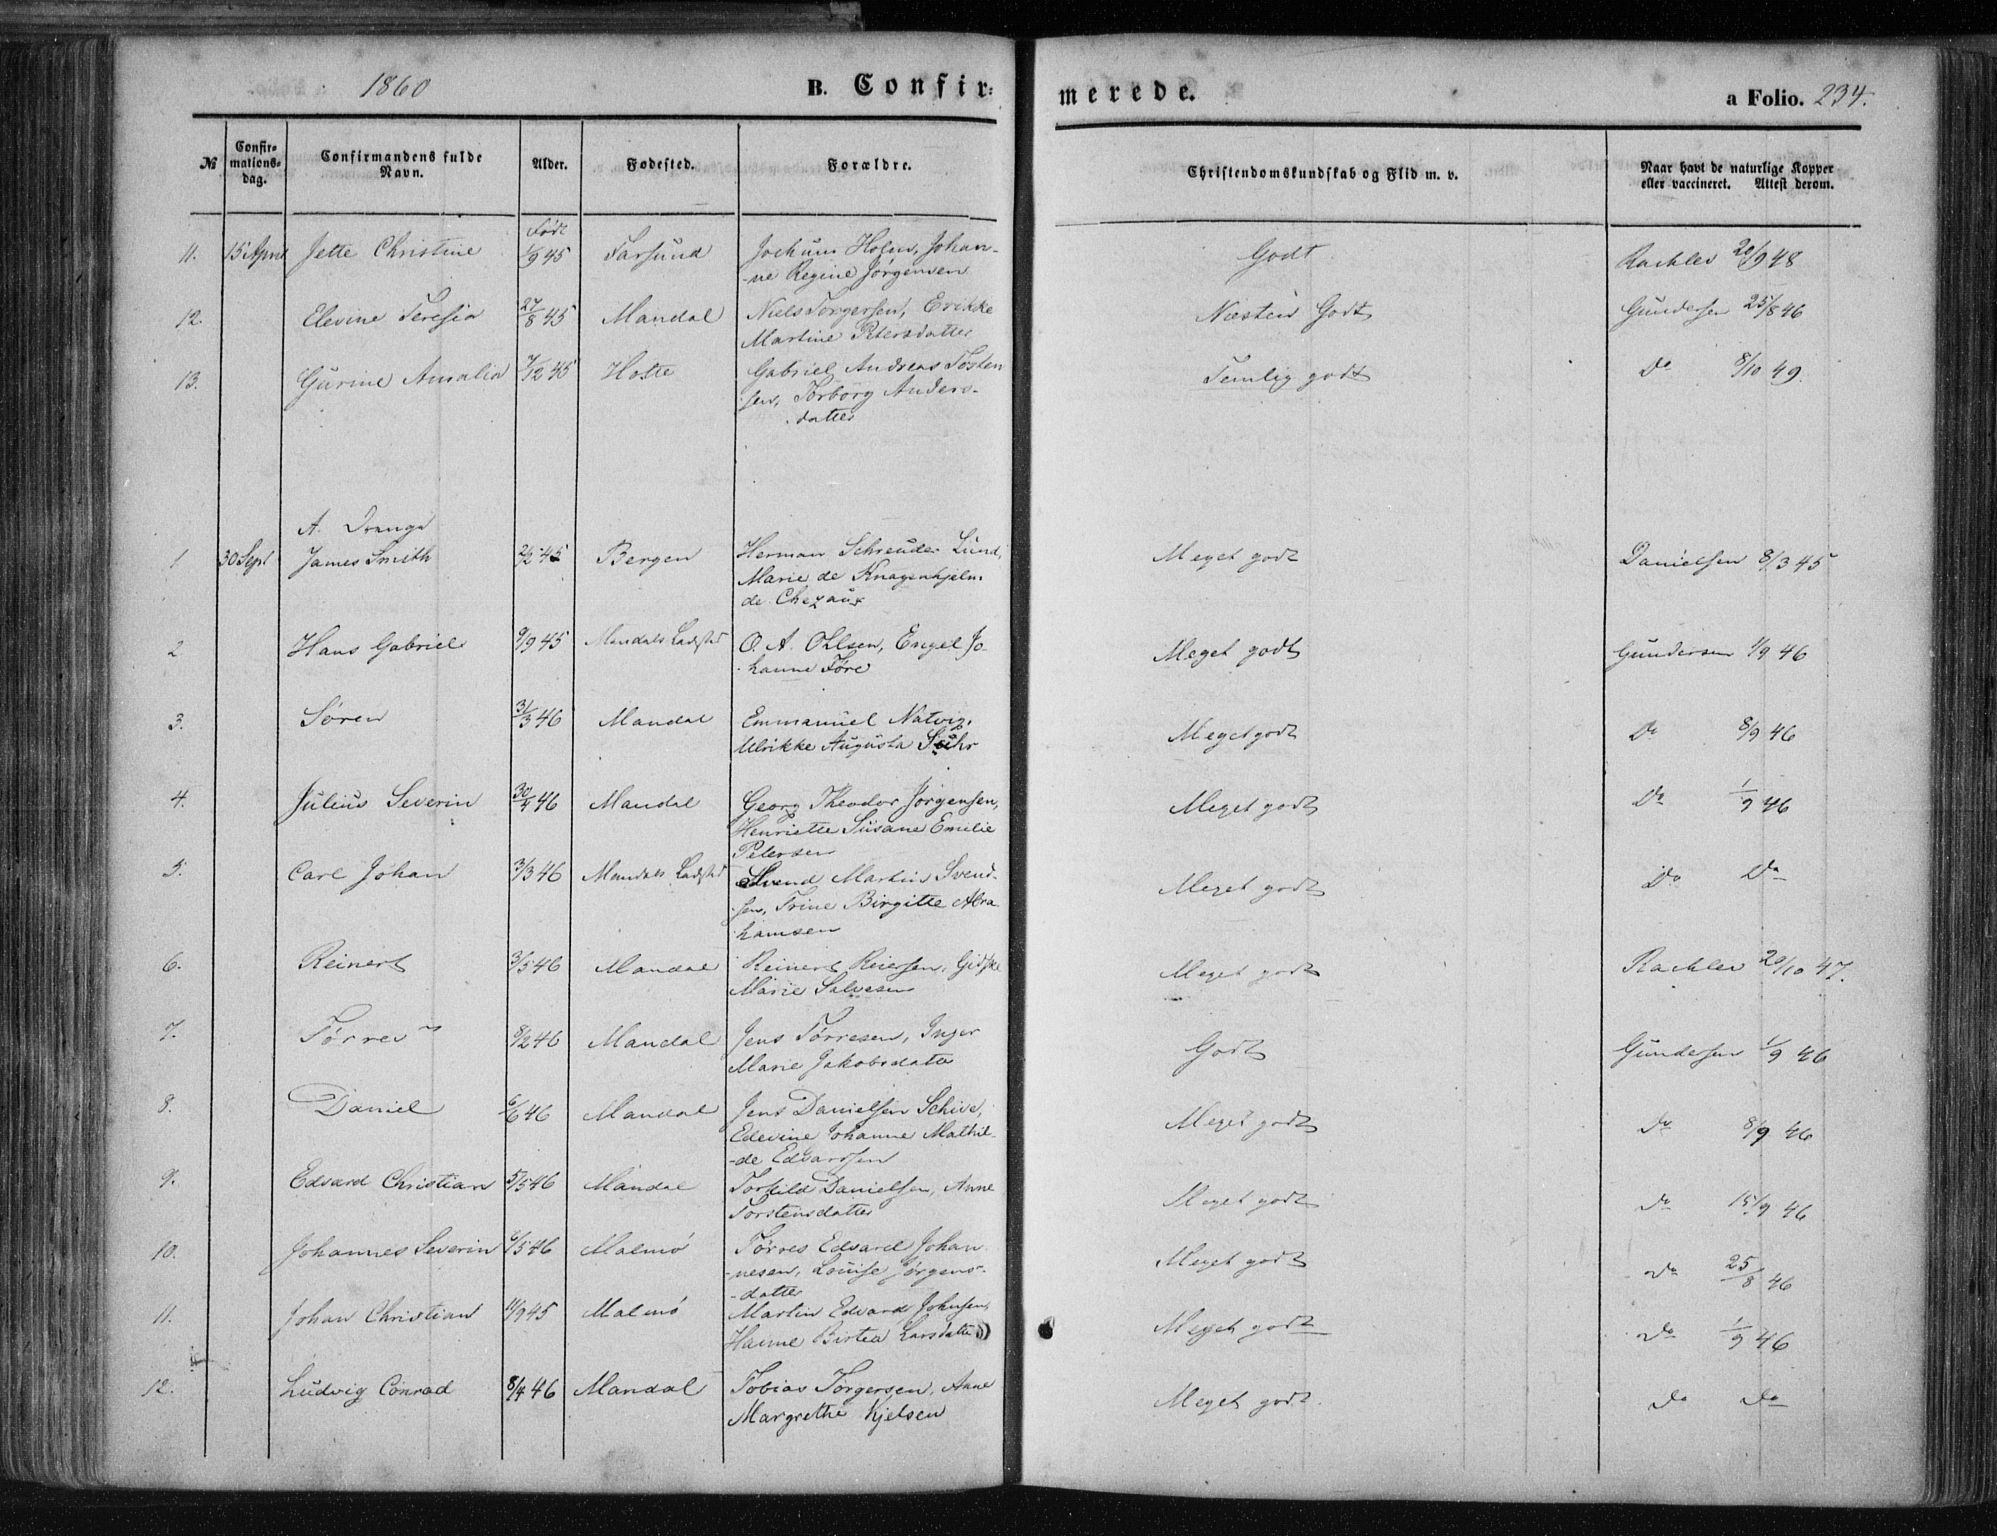 1860 B. Confir= merede. a Folio. 234.
№ Confir=mations=dag. Confirmandens fulde Navn. Alder. Fødested. Forældre. Christendomskundskab og Flid m. v. Naar havt de naturlige Kopper eller vaccineret. Attest derom.
Født
11. 15 April Jette Christine 1/9 45 Farsund Jochum Holm, Johan- Godt Rachlev 20/9 48
-ne Regine Jørgensen
12. Elevine Teresia 27/8 45 Mandal Niels Torgersen, Erikke Næsten Godt Gundersen 25/8 46
Martine Petersdatter
13. Gurine Amalia 7/12 45 Holte Gabriel Andreas Tosten Temlig godt Do 8/10 49.
sen, Torborg Anders-
datter
A. Drenge
1 30 Sept James Smith 2/2 45 Bergen Herman Schreuder Lund, Meget godt Danielsen 8/3 45
Marie de Knagenhjelm
de Chezaux
2 Hans Gabriel 9/9 45 Mandals Ladsted O. A. Ohlsen, Engel Jo Meget godt Gundersen 1/9 46
hanne Føre
3. Søren 31/3 46 Mandal Emmanuel Natvig, Meget godt Do 8/9 46
Ulrikke Augusta Suhr
4. Julius Severin 30/4 46 Mandal Georg Theodor Jørgensen, Meget godt Do 1/9 46
Henriette Susane Emilie
Petersen
5. Carl Johan 3/3 46 Mandals Ladsted Svend Martin Svend- Meget godt Do Do
sen, Trine Birgitte Abra
hamsen
6. Reinert 3/5 46 Mandal Reinert Reiersen, Gidske Meget godt Rachlev 20/10 47.
Marie Salvesen
7. Tørres 8/2 46 Mandal Jens Tørresen, Inger Godt Gundersen 1/9 46
Marie Jakobsdatter
8. Daniel 6/6 46 Mandal Jens Danielsen Schive, Meget godt Do 8/9 46
Edevine Johanne Mathil-
-de Edvardsen
9. Edvard Christian 5/5 46 Mandal Torkild Danielsen, Anne Meget godt Do 15/9 46
Torstensdatter
10. Johannes Severin 6/5 46 Malmø Tørres Edvard Johan Meget godt Do 25/8 46
-nesen, Louise Jørgens-
-datter
11. Johan Christian 11/9 45 Malmø Martin Edvard Johnsen, Meget godt Do 1/9 46
Hanne Birtea Larsdatter
12. Ludvig Conrad 8/4 46 Mandal Tobias Torgersen, Anne Meget godt. Do Do
Margrethe Kjelsen